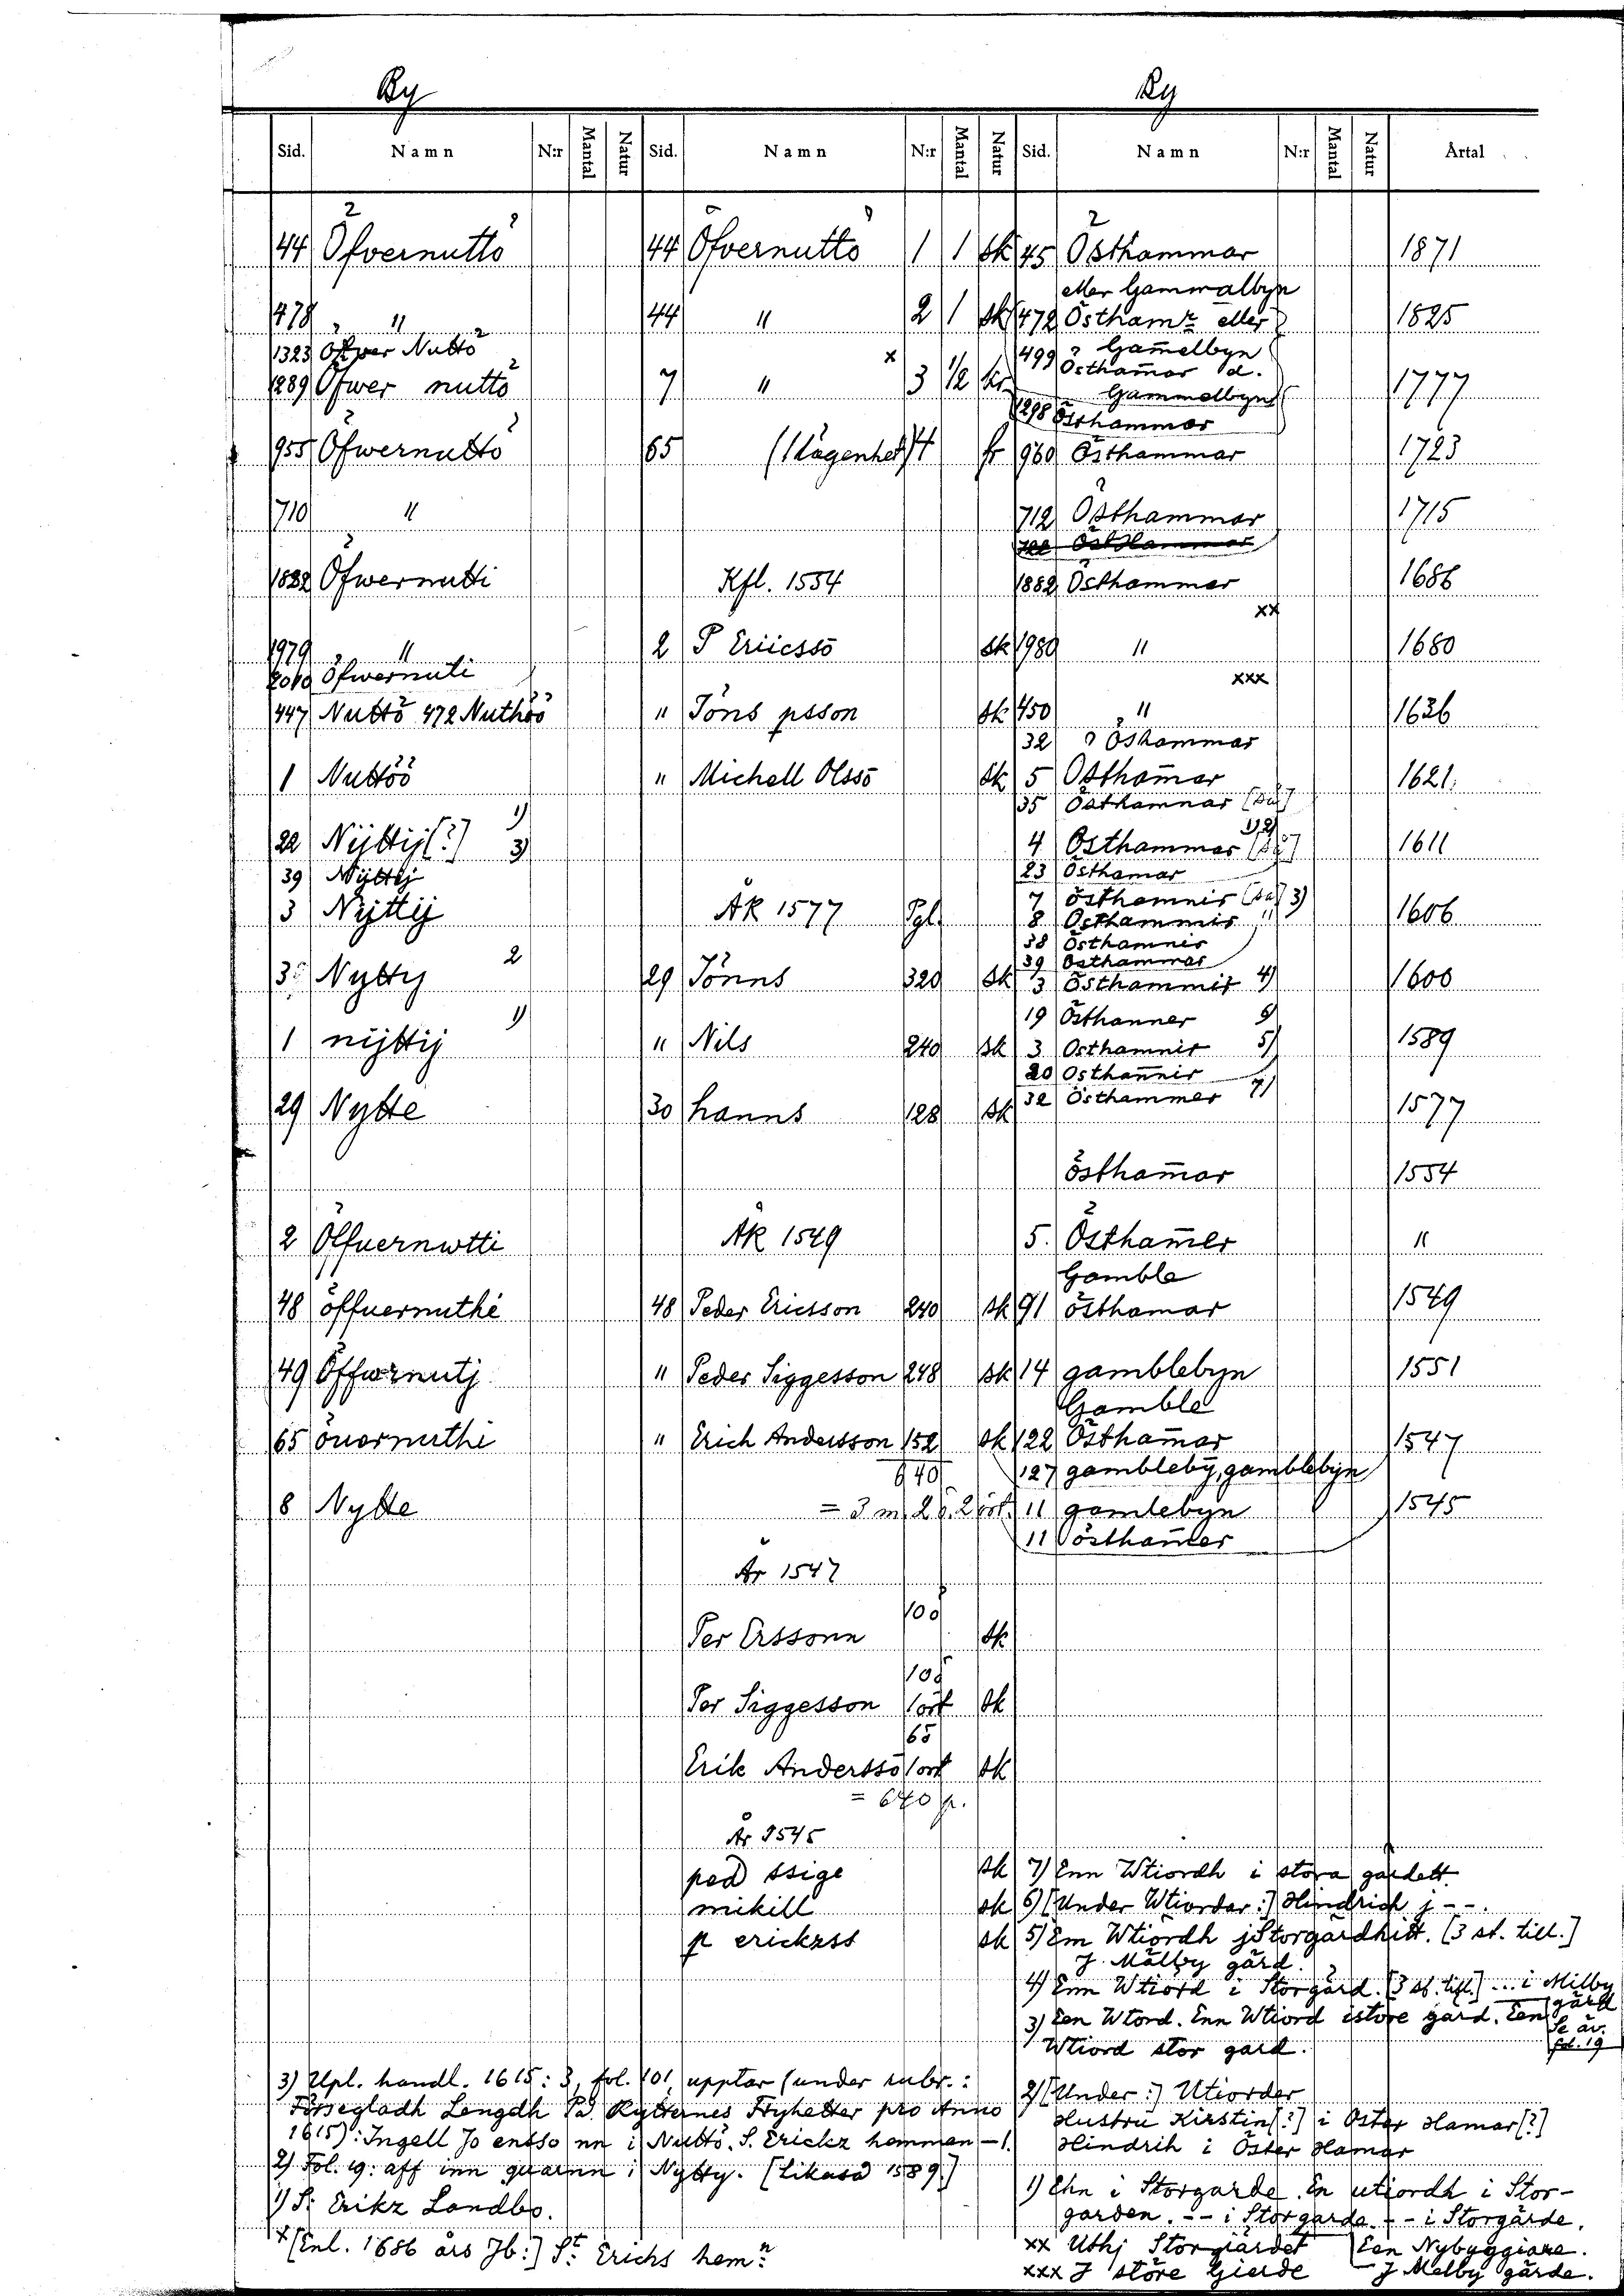 By By
Sid. Namn N:r Mantal Natur Sid. Namn N:r Mantal Natur Sid. Namn N:r Mantal Natur Årtal
44 Öfvernuttö 44 Öfvernuttö 1 1 sk 45 Östhammar 1871
eller Gammalbyn
478 " 44 " 2 1 sk 472 Östhamr eller 1825
1323 Öfwer Nuttö 499 Gam̄elbyn
Östham̄ar d.
1289 Öfwer nuttö 7 " x 3 1/2 kr Gammelbyn 1777
1298 Östhammar
955 Öfwernuttö 65 (Lägenhet) 4 fr 960 Östhammar 1723
710 " 712 Östhammar 1715
1882 Öfwernutti Kfl. 1554 1882 Östhammar 1686
xx
1979 " 2 P Eriicssō sk 1980 " 1680
2010 Öfwernuti xxx
447 Nuttö 472 Nuthöö " Jöns psson sk 450 " 1636
32 Öshammar
1 Nuttöö " Michell Olssō sk 5 Östham̄ar 1621
35 Östhamnar
22 Nÿttij[?] 1) 3) 4 Östhammar 1,2) 1611
39 Nÿttij 23 Östhamar
3 Nÿttij ÅR 1577 Pgl. 7 östhamnir 3) 1606
8 Östhammir "
38 Östhamnir
39 Östhammar
35 Nytty 2 29 Jönns 320 sk 3 Östhammir 4) 1600
19 Östhanner
1 nijttij 1) " Nils 240 sk 3 Osthamnir 5) 1589
20 Osthan̄nir
29 Nytte 30 hanns 128 sk 32 Östhammer 7) 1577
östham̄ar 1554
2 Öffuernwtti ÅR 1549 5. Östham̄er "
Gamble
48 öffuernuthi 48 Peder Ericsson 240 sk 91 östhamar 1549
49 Öffwrnutj " Peder Siggesson 248 sk 14 gamblebyn 1551
Gamble
65 öuernuthi " Erich Andersson 152 sk 122 Östham̄ar 1547
640 127 gambleby, gamblebyn
8 Nytte = 3 m. 2 ö. 2 ört. 11 gamlebyn 1545
11 östham̄er
År 1547
100
Per Erssonn sk
10ö
Per Siggesson 1 ört sk
6ö
Erik Anderssō 1 ört sk
= 640 p.
År 1545
ped ssige sk 7) Enn Wtiordh i stora gardett.
mikill sk 6) [Under Wtiorder:] Hindrich j --.
p erickzss sk 5) Em Wtiordh j Storgårdhitt. [3 st. till.]
J Mälby gård.
4) Enn Wtiord i Storgård. [3 st. till.] ... i Milby gärd
3) Een Wtord. Enn Wtiord i store gard. Een Se äv. fol. 19
Wtiord stor gard.
3) Upl. handl. 1615:3, fol. 101, upptar (under rubr.: 2) [Under:] Utiorder
Försegladh Lengdh På Rytternes Fryhetter pro Anno Hustru Kirstin[?] i Oster Hamar[?]
1615): Ingell Jo ensso nn i Nuttö. S. Erickz hemman – 1. Hindrik i Öster Hamar
2) Fol. 19: aff inn quarnn i Nytty. [Likaså 1589.]
1) S: Erikz Landbo. 1) Ehn i Storgarde. En utiordh i Stor-
garden. -- i Storgarda. -- i Storgärde.
x [Enl. 1686 års Jb:] St. Erichs hemn: xx Uthj Storgiärdet Een Nybyggiare.
xxx J störe Gierde – J Melby gärde.